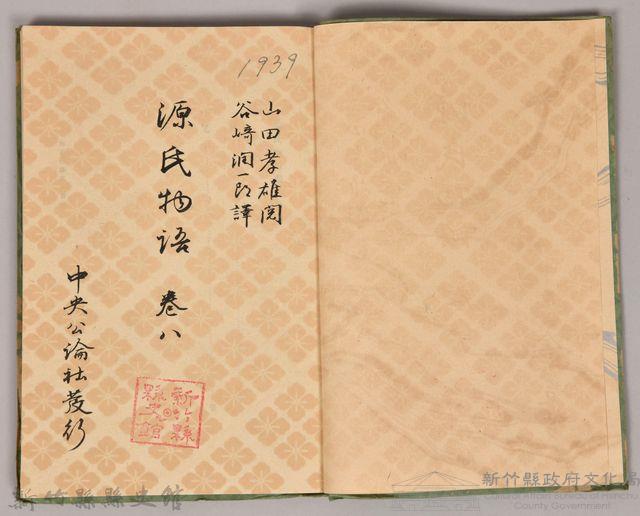 1939
山田孝雄閲
谷崎潤一郎譯
源氏物語 卷八
中央公論社發行
新竹縣
縣史館
新竹縣縣史館
新竹縣政府文化局
County Government